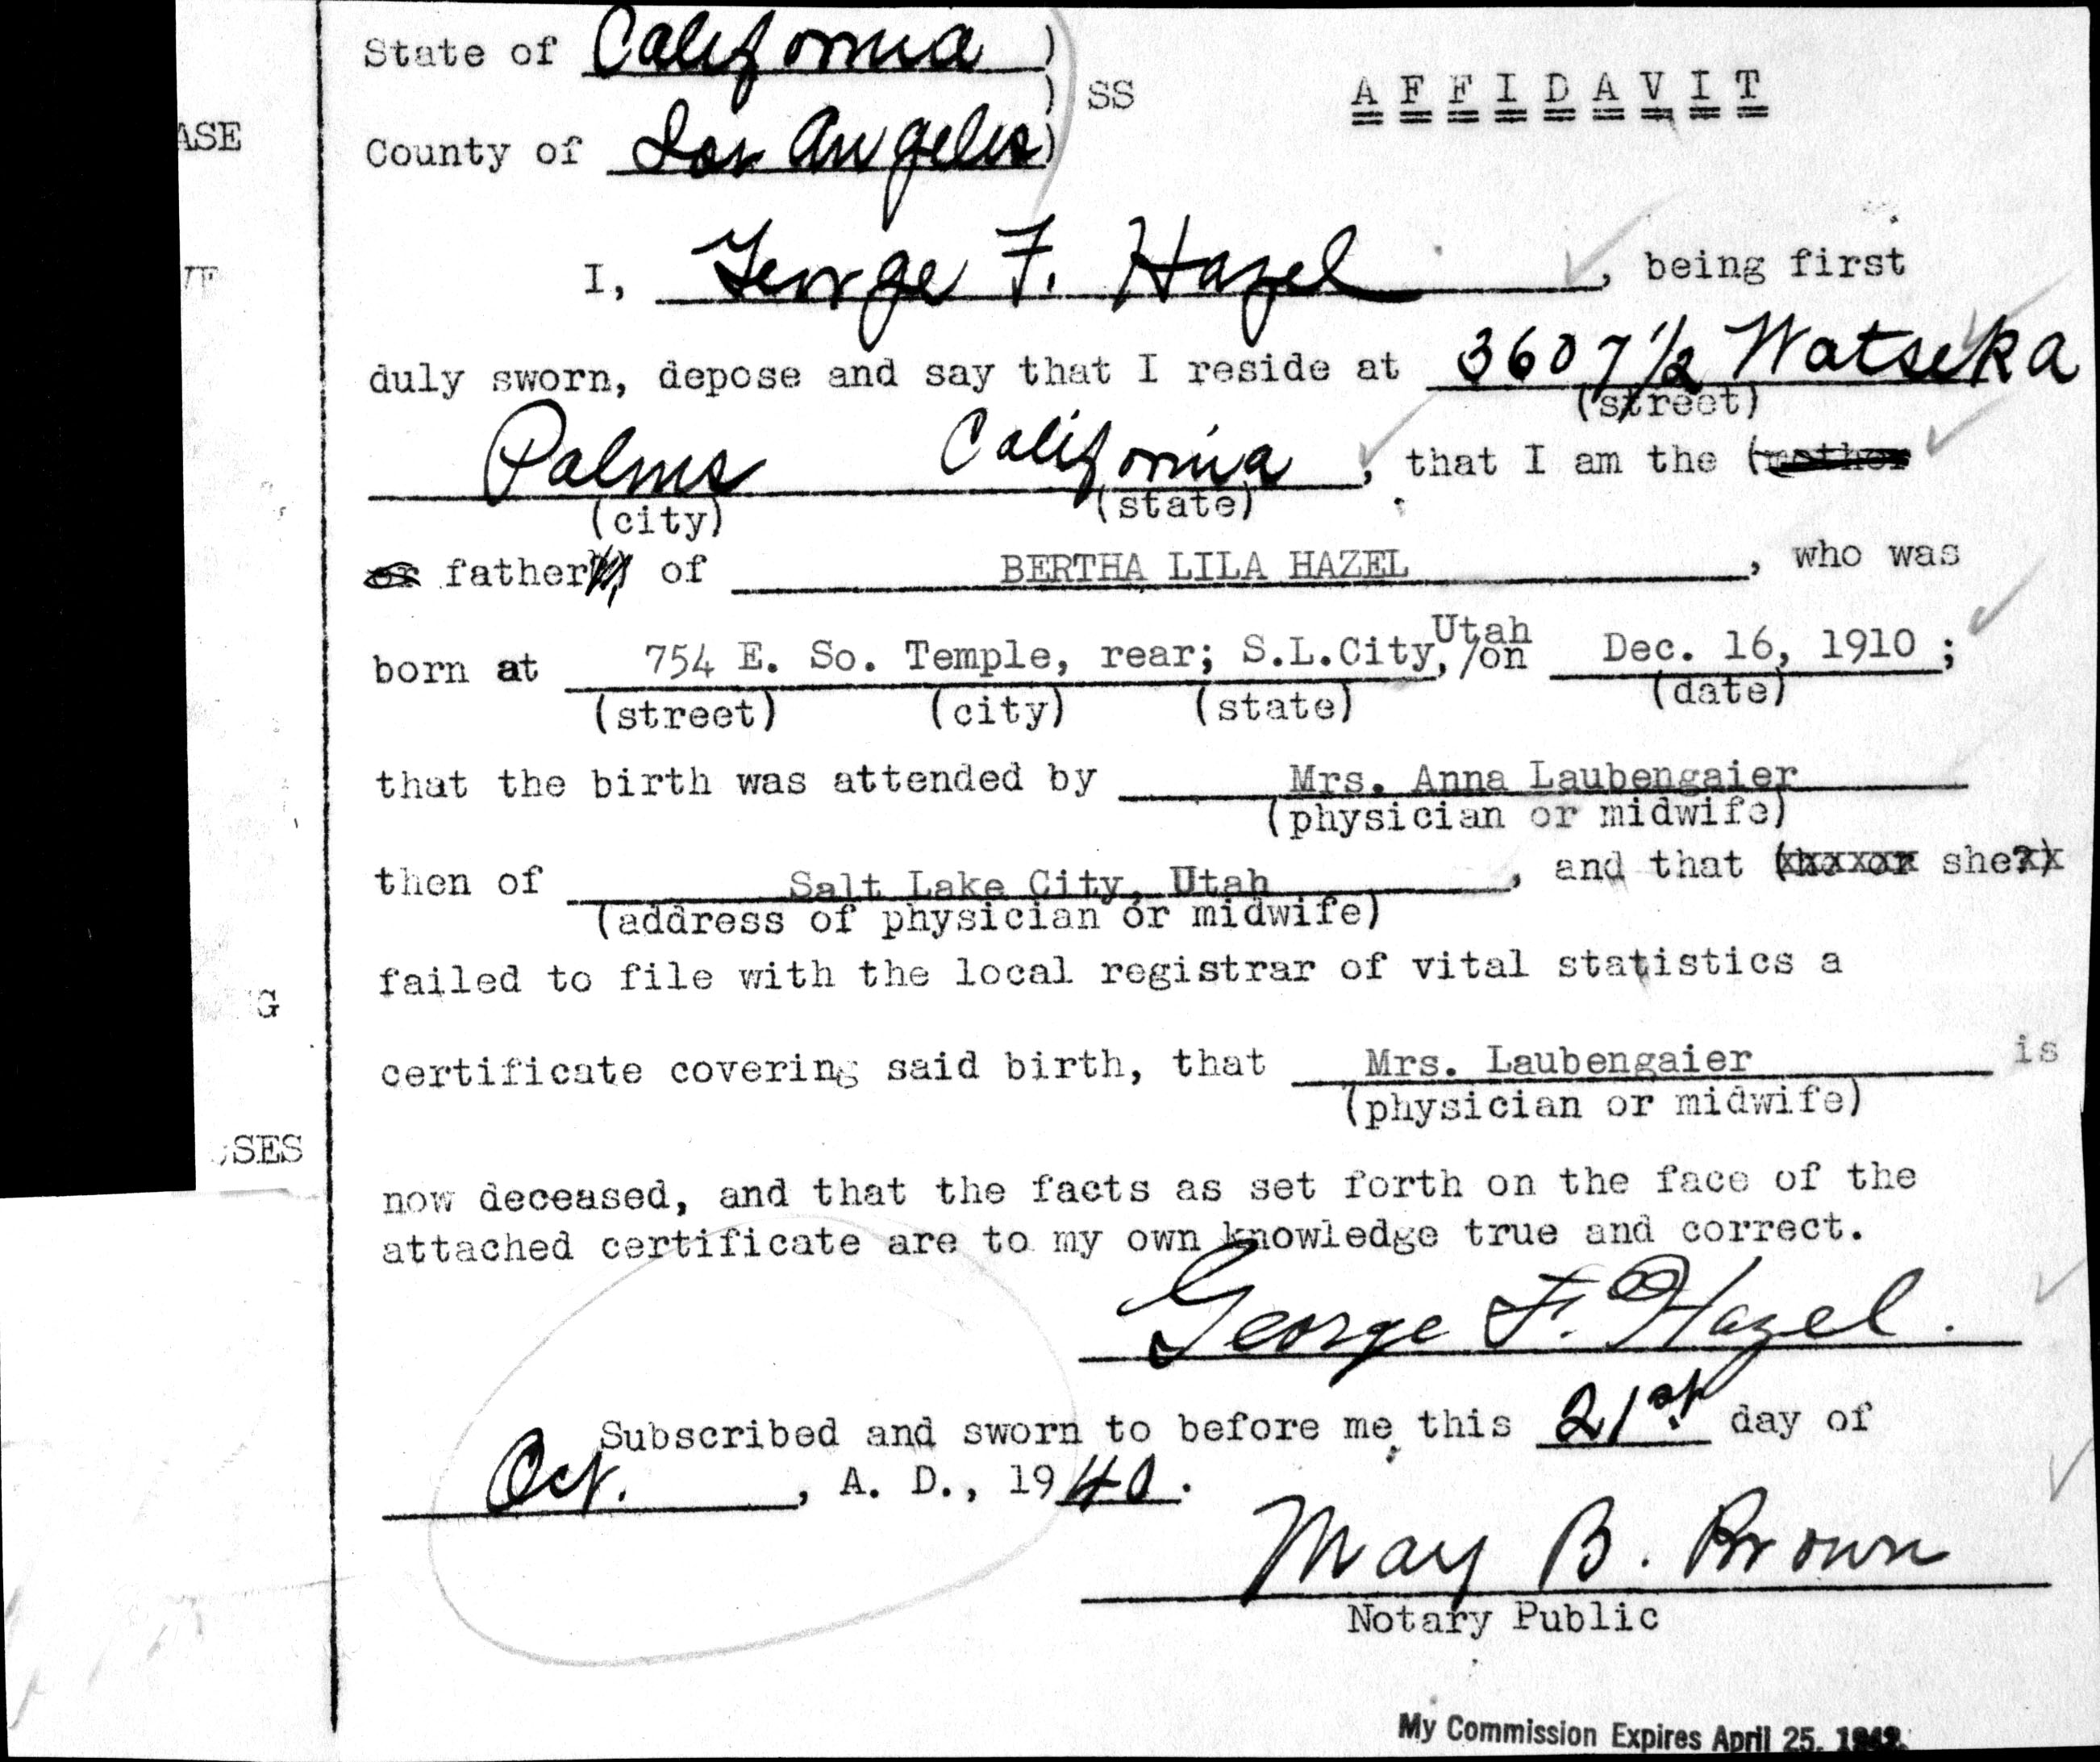 State of California )
) SS A F F I D A V I T
ASE
County of Los Angeles )
I, George F. Hazel, being first
duly sworn, depose and say that I reside at 3607 1/2 Watseka
(street)
Palms California, that I am the (mother
(city) (state)
or father) of BERTHA LILA HAZEL, who was
born at 754 E. So. Temple, rear; S.L.City, Utah /on Dec. 16, 1910;
(street) (city) (state) (date)
that the birth was attended by Mrs. Anna Laubengaier
(physician or midwife)
then of Salt Lake City, Utah, and that (he or she
(address of physician or midwife)
failed to file with the local registrar of vital statistics a
G
certificate covering said birth, that Mrs. Laubengaier is
(physician or midwife)
SES
now deceased, and that the facts as set forth on the face of the
attached certificate are to my own knowledge true and correct.
George F. Hazel.
Subscribed and sworn to before me this 21st day of
Oct., A. D., 1940.
May B. Brown
Notary Public
My Commission Expires April 25, 1942.